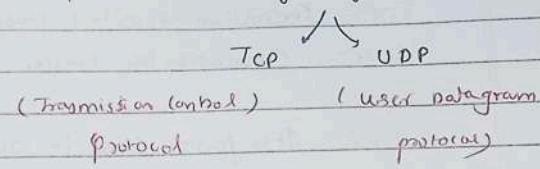 TCP UDP
(Transmission Control) (User Datagram
Protocol protocol)